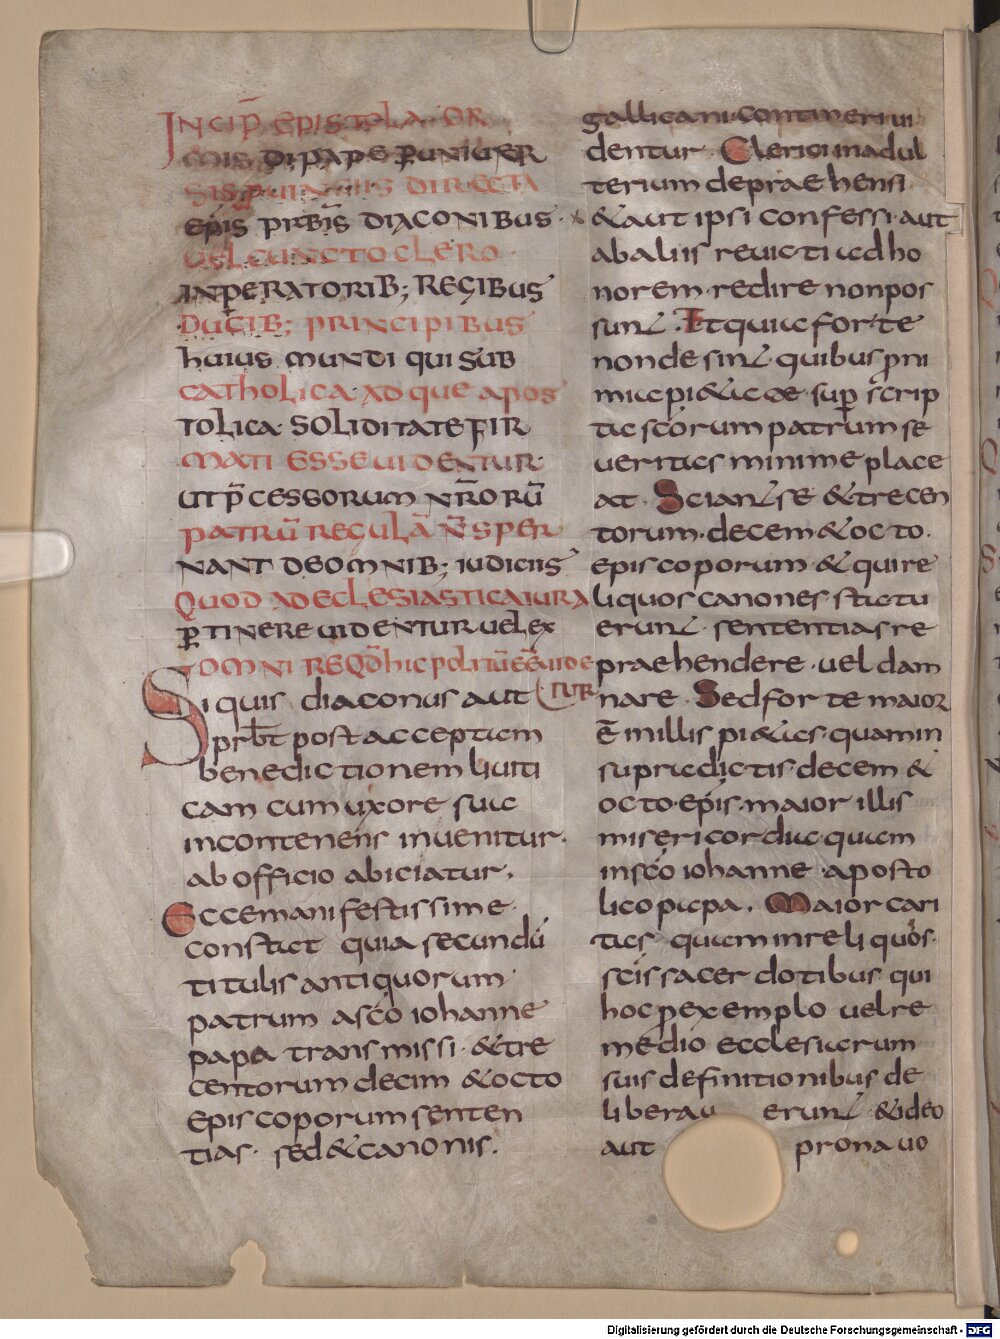 INCIP̄ EPISTOLA OR
MIS DI PAPE P̲ UNIUER
SIS DIRECTA
EPIS̄ PRB̄IS DIACONIBUS
UEL CUNCTO CLERO
INP̲ERATORIB; REGIBUS
DUCIB; PRINCIPIBUS
huius MUNDI QUI SUB
CATHOLICA ADQUE APOS
TOLICA SOLIDITATE FIR
MATI ESSE UIDENTUR
UT P̄CESSORUM NR̄ORŪ
PATRŪ REGULĀ N̄ SPER
NANT DEOMNIB; IUDICIIS
QUOD AD ECLESIASTICA IURA
P̲TINERE UIDENTUR UEL EX
Si quis diaconus aut
prb̄t post acceptam
benedictionem liuiti
cam cum uxore sua
incontenens inuenitur.
ab officio abiciatur,
Ecce manifestissime
constat quia secundū
titulis antiquorum
patrum a sc̄o iohanne
papa transmissi · & tre
centorum decim & octo
episcoporum senten
tias · sed & canonis.
gallicani · contineri ui
dentur Clerici in adul
terium depraehensi
& aut ipsi confessi · aut
ab aliis reuicti ad ho
norem · redire non pos
sunt · Et quia forte
non desint quibus pri
ma pi&as de sup̲scrip
ta sc̄orum patrum se
ueritas minime place
at · Sciant se & trecen
torum · decem & octo.
episcoporum & qui re
liquos canones statu
erunt · sententias re
praehendere · uel dam
nare · Sed forte maior
ē in illis pi&as · quam in
supradictis decem &
octo · epis̄ · maior illis
misericordia · quam
in sc̄o iohanne · aposto
lico papa, Maior cari
tas · quam in reliquos ·
sc̄is sacerdotibus qui
hoc p̲ exemplo uel re
medio ecclesiarum
suis definitionibus de
liberau erunt · & ideo
aut prona uo
Digitalisierung gefördert durch die Deutsche Forschungsgemeinschaft - DFG